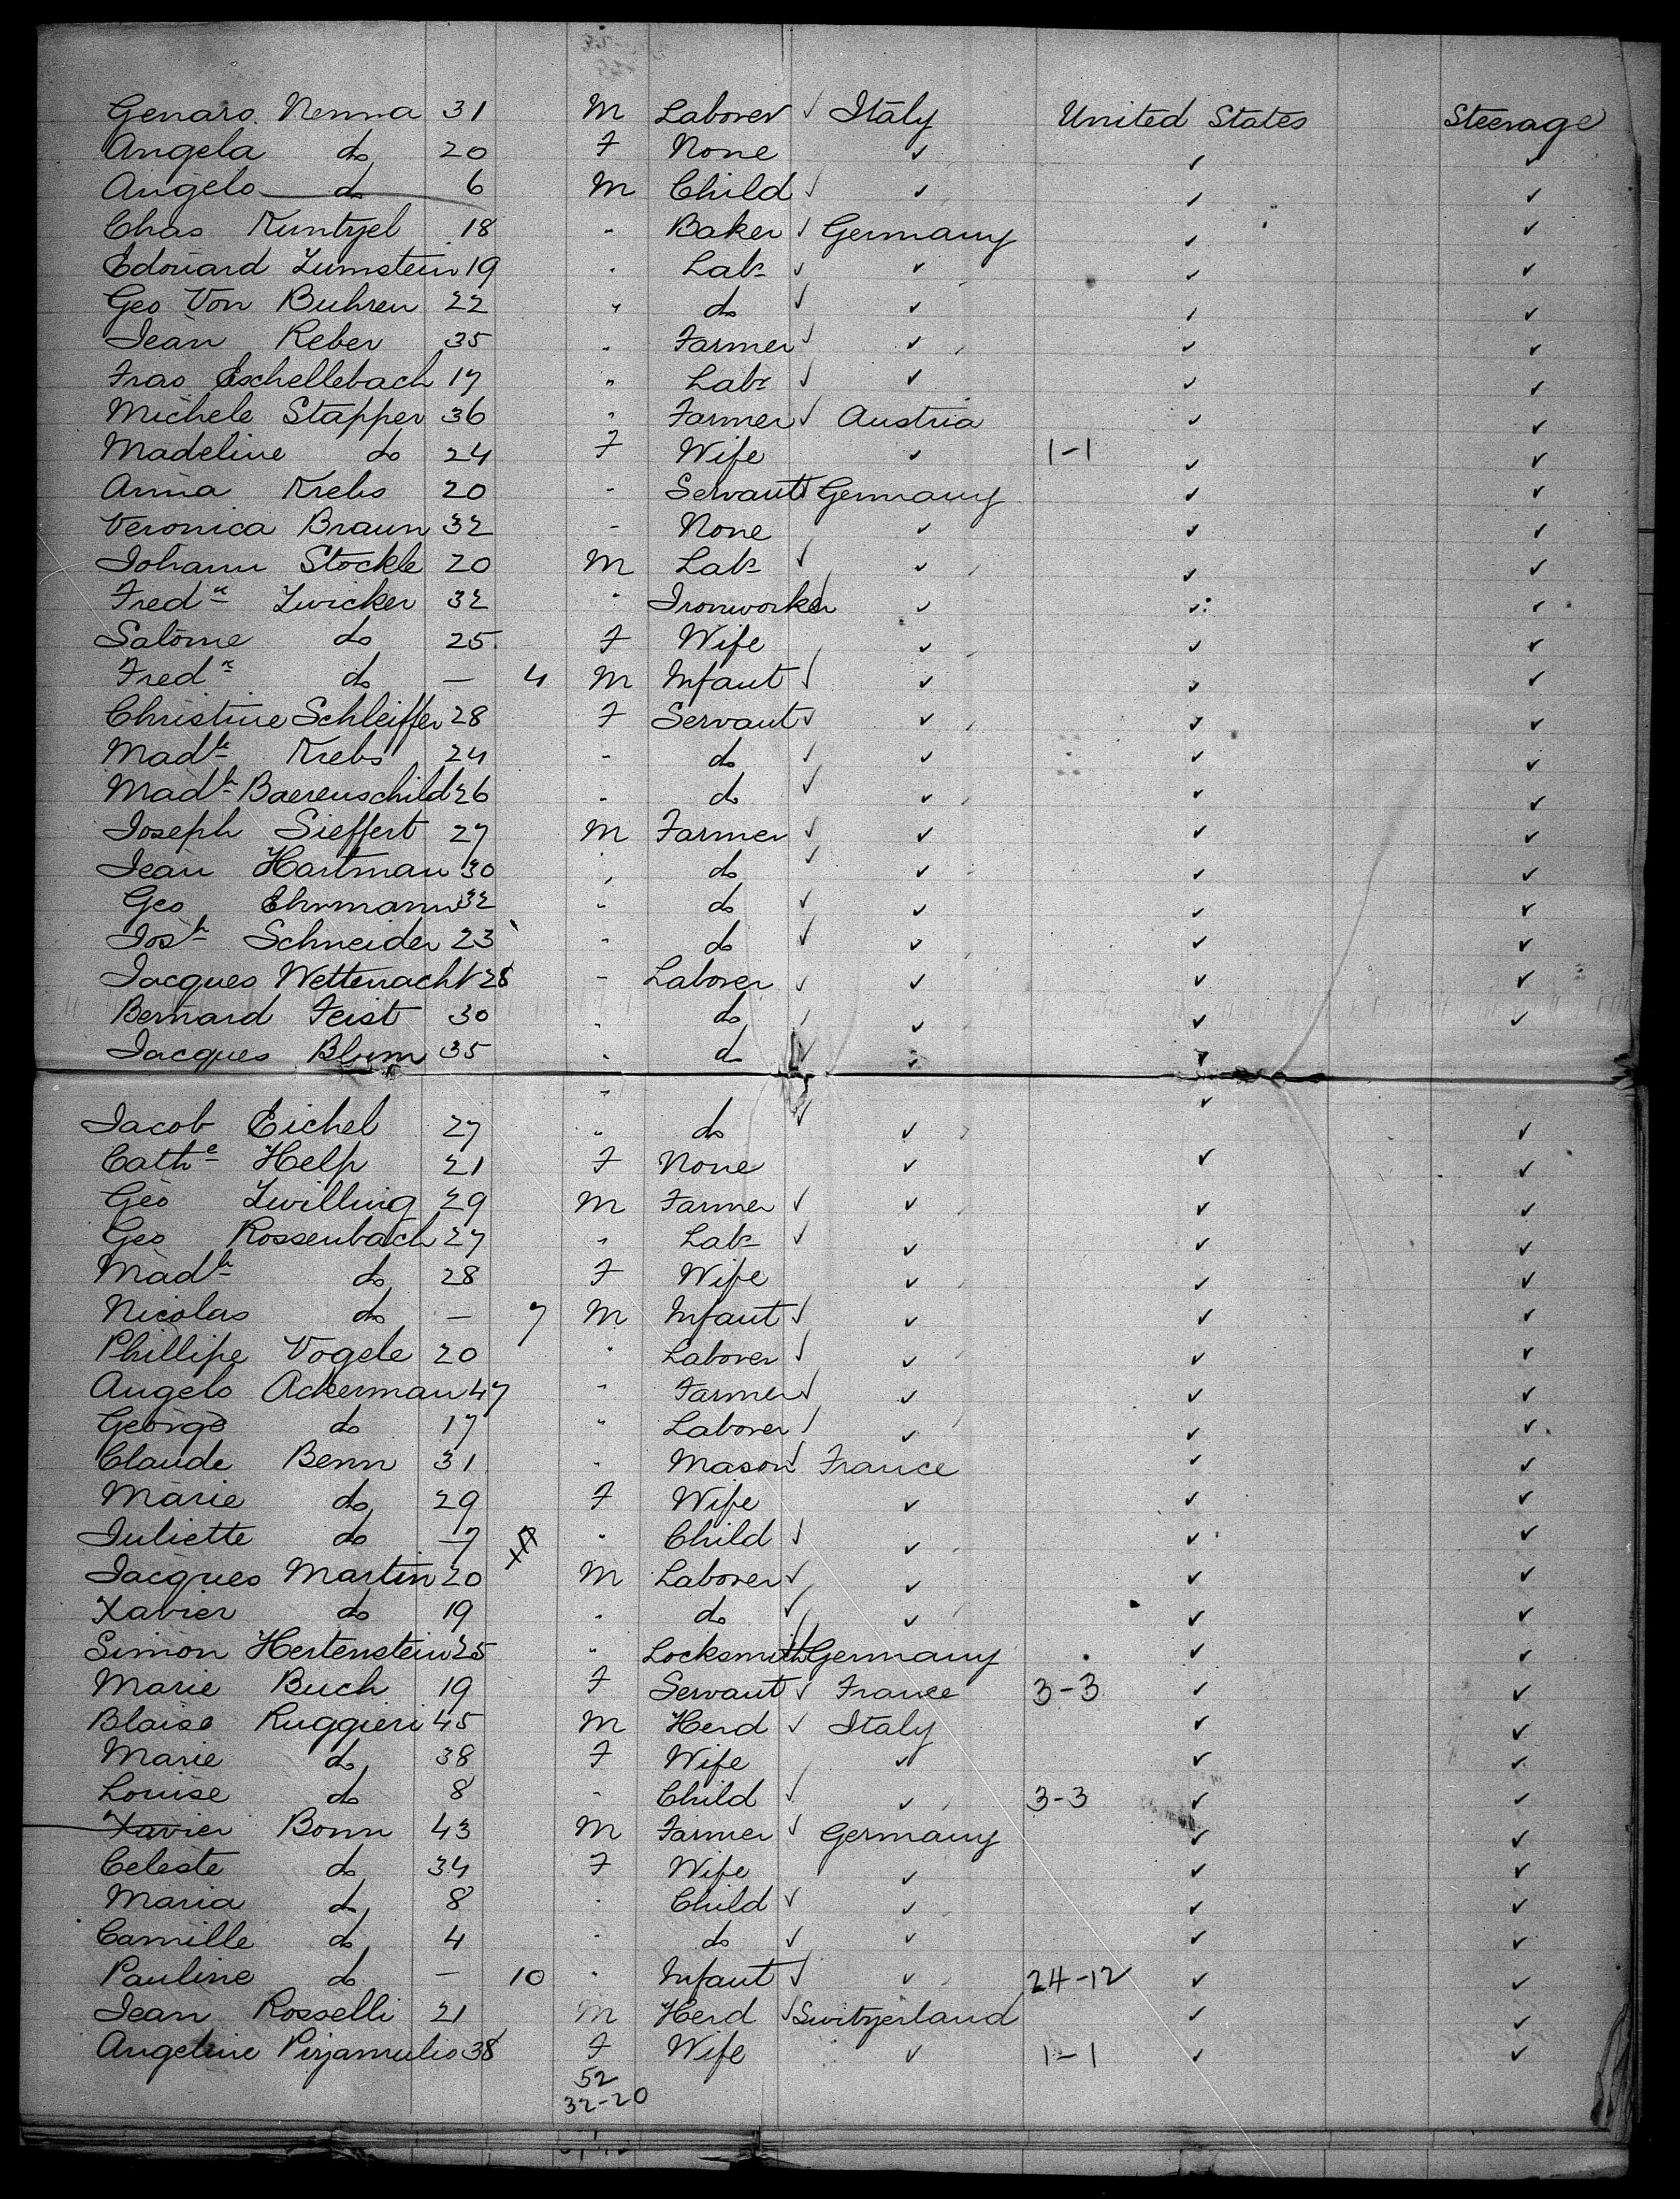 Genaro Nenna 31 M Laborer ✓ Italy United States Steerage
Angela do 20 F None ✓ ✓ ✓
Angelo do 6 M Child ✓ ✓ ✓ ✓
Chas Kuntzel 18 " Baker ✓ Germany ✓ ✓
Edouard Zumstein 19 " Labr ✓ ✓ ✓ ✓
Geo Von Buhren 22 " do ✓ ✓ ✓ ✓
Jean Reber 35 " Farmer ✓ ✓ ✓ ✓
Fras Eschellebach 17 " Labr ✓ ✓ ✓ ✓
Michele Stapper 36 " Farmer ✓ Austria ✓ ✓
Madeline do 24 F Wife ✓ 1-1 ✓ ✓
Anna Krebs 20 " Servant ✓ Germany ✓ ✓
Veronica Braun 32 " None ✓ ✓ ✓
Johann Stockle 20 M Labr ✓ ✓ ✓ ✓
Fredk Zwicker 32 " Ironworker ✓ ✓ ✓ ✓
Salome do 25 F Wife ✓ ✓ ✓
Fredk do — 4 M Infant ✓ ✓ ✓ ✓
Christine Schleiffer 28 F Servant ✓ ✓ ✓ ✓
Madln Krebs 24 " do ✓ ✓ ✓ ✓
Madln Baerenschild 26 " do ✓ ✓ ✓ ✓
Joseph Sieffert 27 M Farmer ✓ ✓ ✓ ✓
Jean Hartman 30 " do ✓ ✓ ✓ ✓
Geo Ehrmann 32 " do ✓ ✓ ✓ ✓
Josh Schneider 23 " do ✓ ✓ ✓ ✓
Jacques Wettenacht 28 " Laborer ✓ ✓ ✓ ✓
Bernard Feist 30 " do ✓ ✓ ✓ ✓
Jacques Blum 35 " do ✓ ✓ ✓
Jacob Eichel 27 " do ✓ ✓ ✓ ✓
Cathe Help 21 F None ✓ ✓ ✓
Geo Zwilling 29 M Farmer ✓ ✓ ✓ ✓
Geo Rossenbach 27 " Labr ✓ ✓ ✓ ✓
Madln do 28 F Wife ✓ ✓ ✓
Nicolas do — 7 M Infant ✓ ✓ ✓ ✓
Phillipe Vogele 20 " Laborer ✓ ✓ ✓ ✓
Angelo Ackerman 47 " Farmer ✓ ✓ ✓ ✓
George do 17 " Laborer ✓ ✓ ✓ ✓
Claude Benn 31 " Mason ✓ France ✓ ✓
Marie do 29 F Wife ✓ ✓ ✓
Juliette do 7 " Child ✓ ✓ ✓ ✓
Jacques Martin 20 M Laborer ✓ ✓ ✓ ✓
Xavier do 19 " do ✓ ✓ ✓ ✓
Simon Hertenstein 25 " Locksmith ✓ Germany ✓ ✓
Marie Buch 19 F Servant ✓ France 3-3 ✓ ✓
Blaise Ruggieri 45 M Herd ✓ Italy ✓ ✓
Marie do 38 F Wife ✓ ✓ ✓
Louise do 8 " Child ✓ ✓ 3-3 ✓ ✓
Xavier Bonn 43 M Farmer ✓ Germany ✓ ✓
Celeste do 34 F Wife ✓ ✓ ✓
Maria do 8 " Child ✓ ✓ ✓ ✓
Camille do 4 " do ✓ ✓ ✓ ✓
Pauline do — 10 " Infant ✓ ✓ 24-12 ✓ ✓
Jean Rosselli 21 M Herd ✓ Switzerland ✓ ✓
Angeline Pizzamulio 38 F Wife ✓ 1-1 ✓ ✓
52
32-20